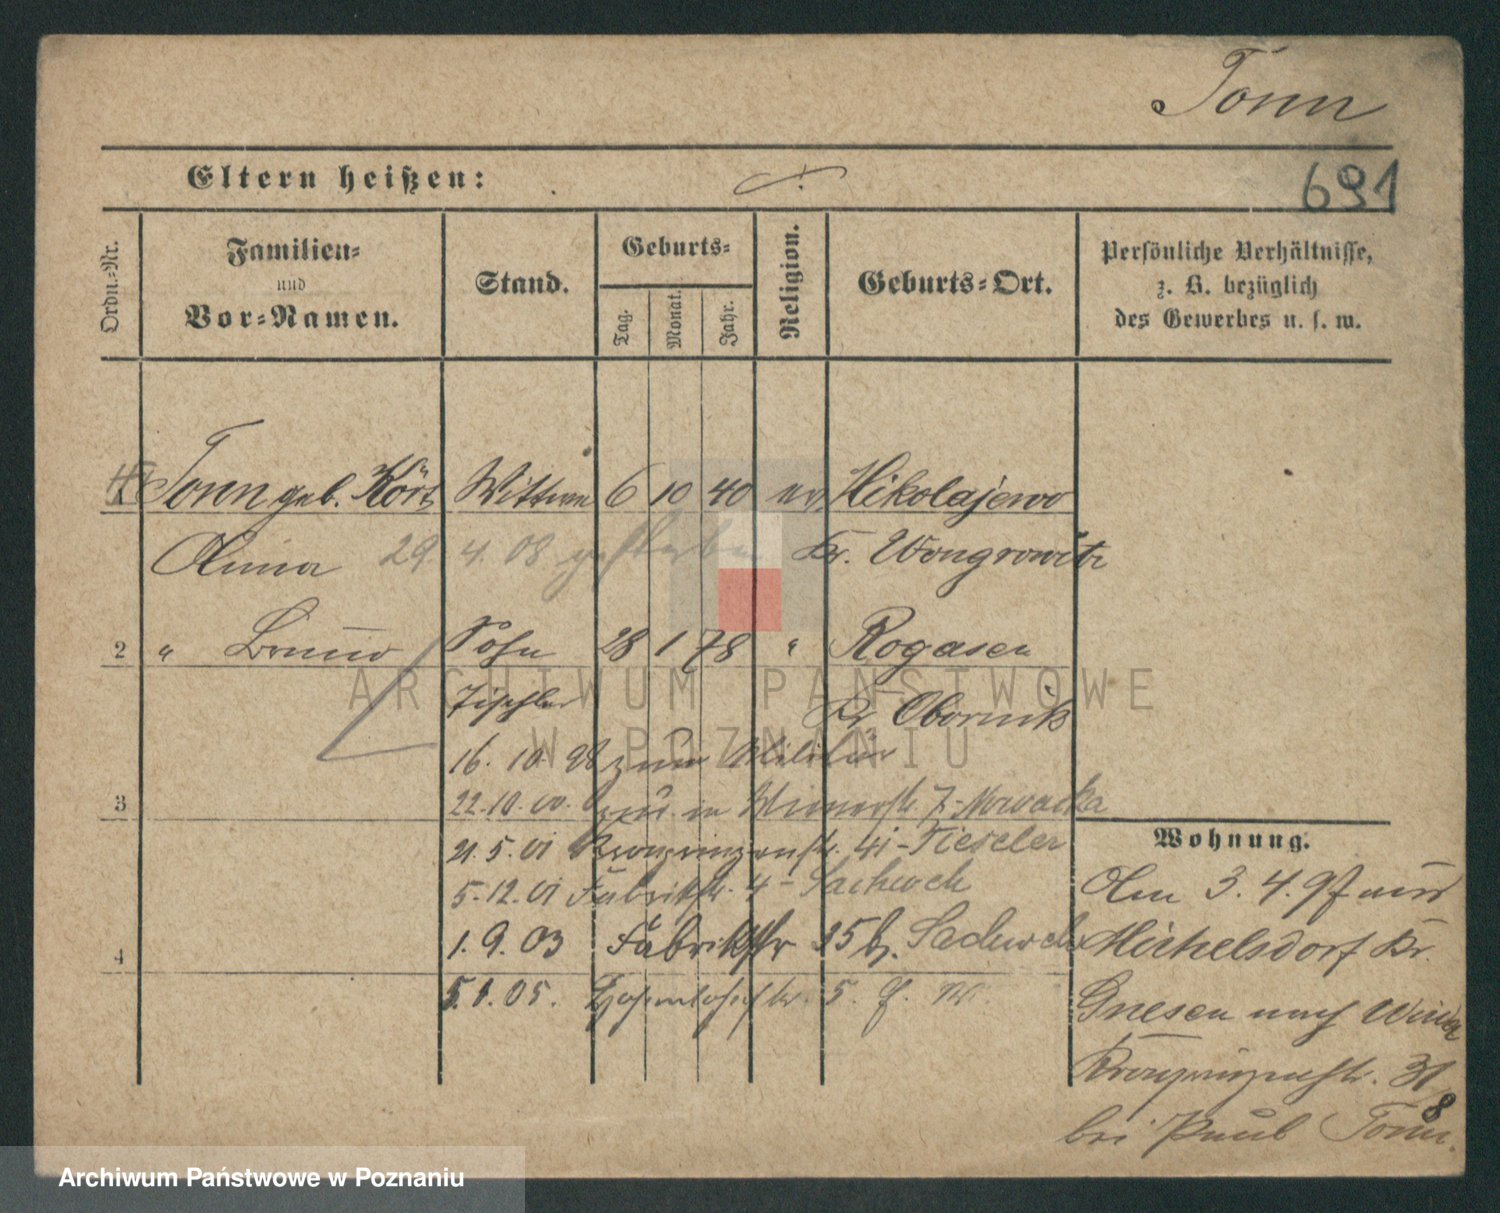 Tonn
Eltern heißen:
691
Ordn.-Nr.
Familien-
und
Vor-Namen.
Stand.
Geburts-
Tag.
Monat.
Jahr.
Religion.
Geburts-Ort.
Persönliche Verhältnisse,
z. B. bezüglich
des Gewerbes u. s. w.
1 Tonn geb. Wittwe 6 10 40 ev. Nikolajewo
29. 4. 08 gestorben Kr. Wongrowitz
2 " Bruno Sohn 28 1 78 " Rogasen
Tischler Kr. Obornik
16. 10. 98 zum Militär
3 22.10.00. 7 - Nowacka
21. 5. 01 Kronprinzenstr. - Tieseler
5.12.01 Fabrikstr. 4 - Sachweh
4 1. 9. 03 Fabrikstr 25 b. Sachweh
5.1.05. Hohenlohestr. 5.
Wohnung.
Am 3. 4. 97 aus
Michelsdorf Kr.
Gnesen nach Wilda
Kronprinzenstr. 31
bei Paul Tonn.
8
ARCHIWUM PAŃSTWOWE
W POZNANIU
Archiwum Państwowe w Poznaniu